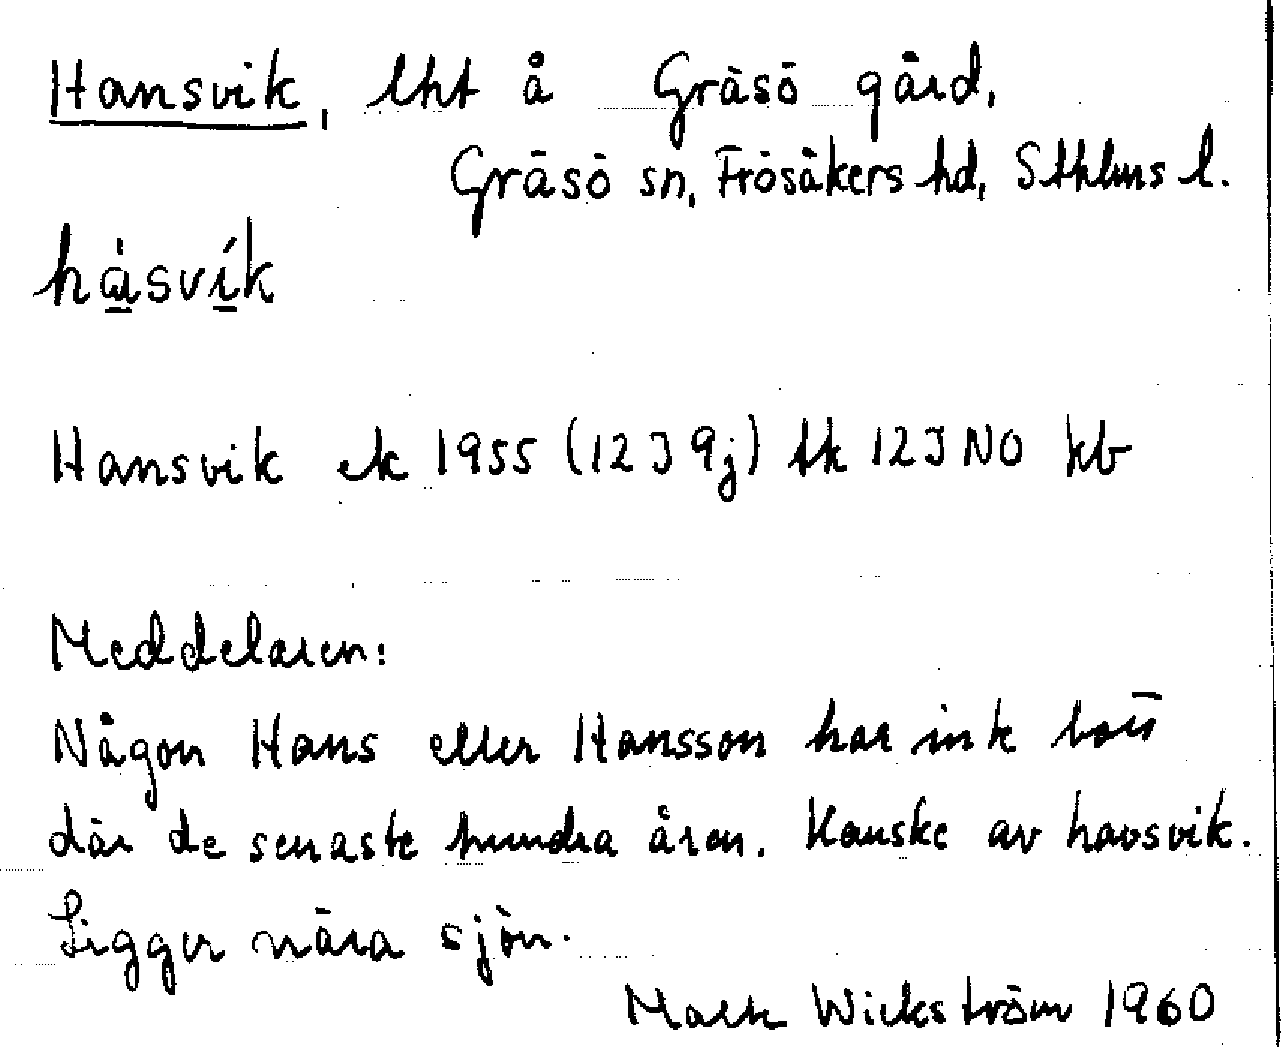 Hansvik, lht å Gräsö gård,
Gräsö sn, Frösåkers hd, Sthlms l.
Hansvik ek 1955 (12J 9j) tk 12J NO kb
Meddelaren:
Någon Hans eller Hansson har inte bott
där de senaste hundra åren. Kanske av havsvik.
Ligger nära sjön.
Wickström 1960